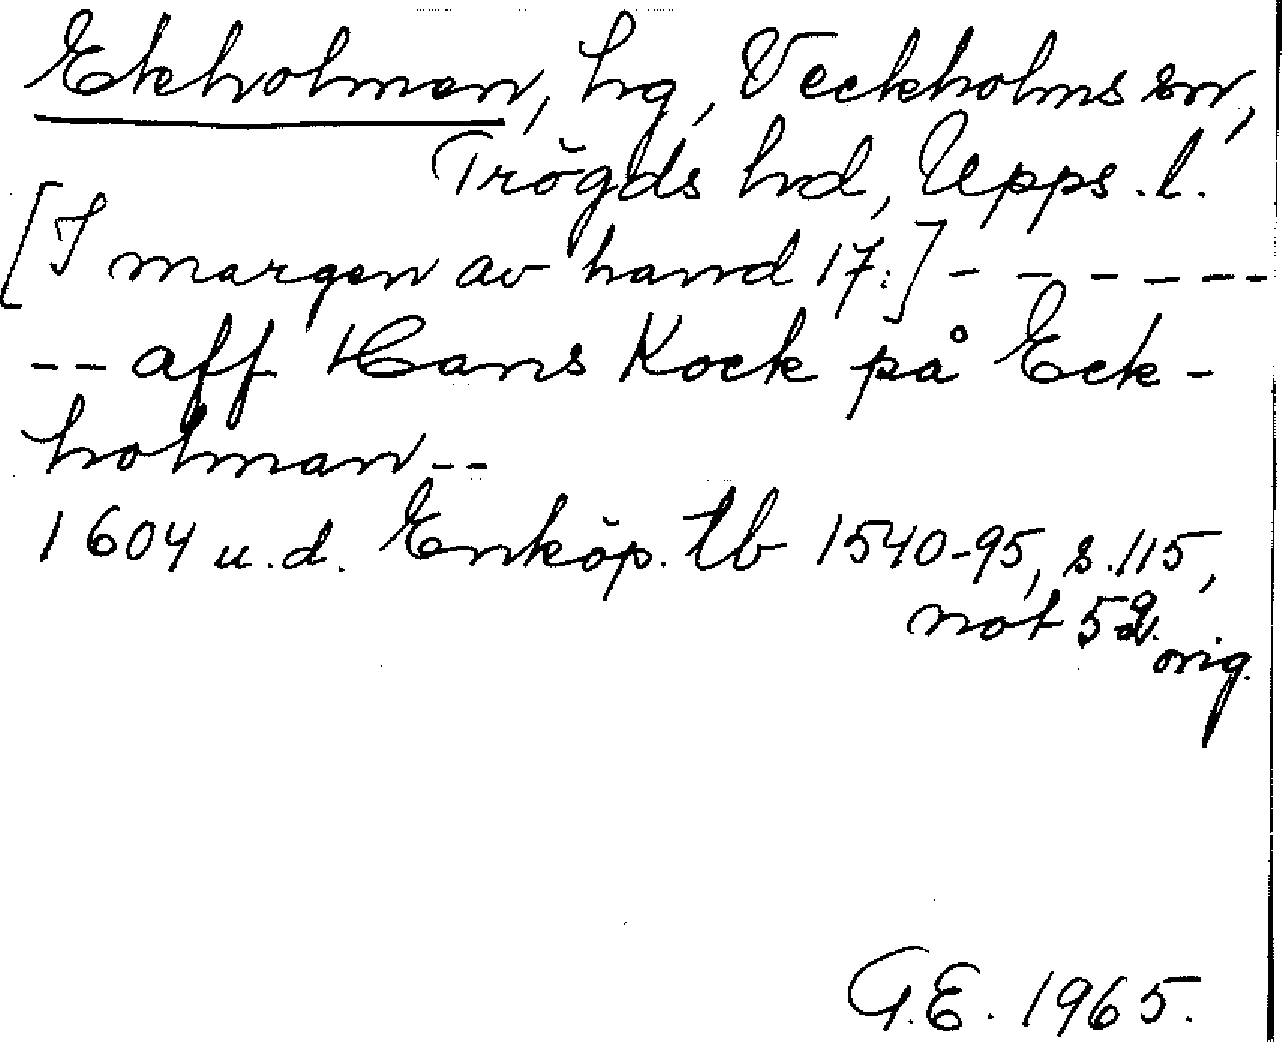 Ekholmen, hg, Veckholms sn,
Trögds hd, Upps. l.
[I margen av hand 17:] - - - - - -
-- aff Hans Kock på Eck-
holman --
1604 u.d. Enköp. tb 1540-95, s. 115,
not 52.
orig.
G.E. 1965.